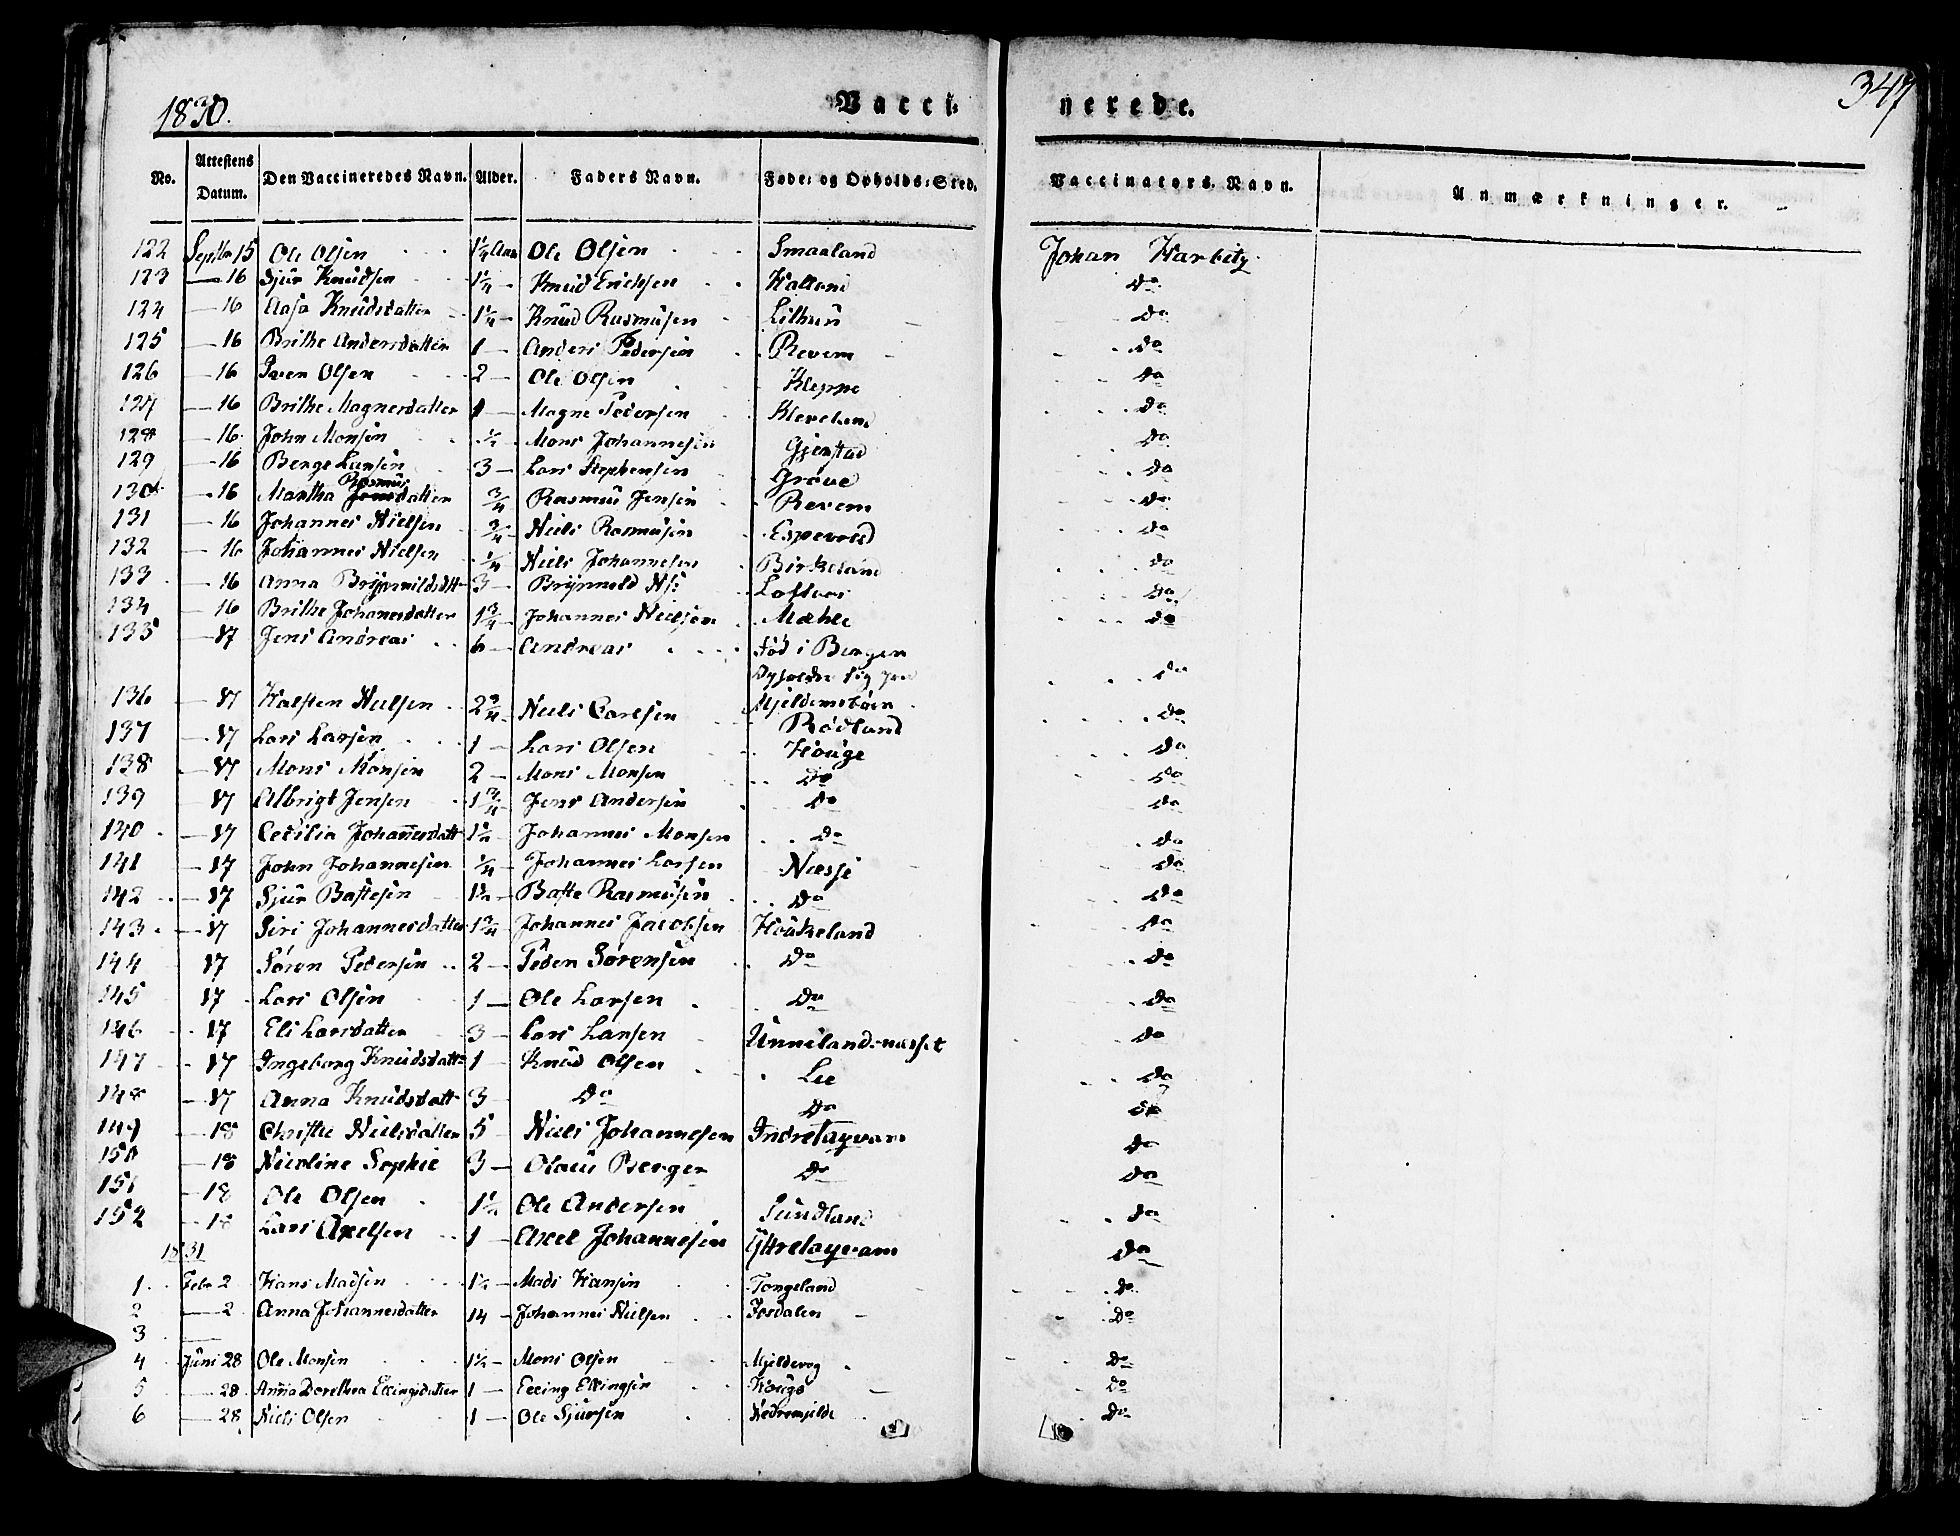 1830.
Vacci-
nerede.
347
No. Attestens Datum. Den Vaccineredes Navn. Alder. Faders Navn. Føde- og Opholds-Sted. Vaccinators Navn. Anmærkninger.
122 Septbr 15 Ole Olsen 1 1/4 Aar Ole Olsen Smaaland Johan Harbitz
123 — 16 Sjur Knudsen 1 1/4 — Knud Erichsen Do
124 — 16 Aasa Knudsdatter 1 1/4 — Knud Rasmusen Do
125 — 16 Brithe Andersdatter 1 — Anders Pedersen Revem Do
126 — 16 Iver Olsen 2 — Ole Olsen Kleppe Do
127 — 16 Brithe Magnesdatter 1 — Magne Pedersen Kleveland Do
128 — 16 John Monsen 1/2 Mons Johannesen Gjerstad Do
129 — 16 Berge Larsen 3 — Lars Stephensen Grøve Do
130 — 16 Martha Rasmusdatter 3/4 Rasmus Jensen Revem Do
131 — 16 Johannes Nielsen 3/4 — Niels Rasmusen Espevold Do
132 — 16 Johannes Nielsen 1/4 Niels Johannesen Birkeland Do
133 — 16 Anna Brynnildsdtr 3 — Brynnild Do
134 — 16 Brithe Johanesdatter 1 3/4 Johannes Nielsen Mæhle Do
135 — 17 Jens Andreas 6 — Andreas Fød i Bergen
Opholder sig paa Do
136 — 17 Halsten Nielsen 2 3/4 Niels Carlsen Rødland Do
137 — 17 Lars Larsen 1 — Lars Olsen Houge Do
138 — 17 Mons Monsen 2 — Mons Monsen Do Do
139 — 17 Albrigt Jensen 1 3/4 Jens Andersen Do Do
140 — 17 Cecilia Johannesdatt 1 1/2 Johannes Monsen Do Do
141 — 17 John Johannesen 1/4 — Johannes Larsen Næsse Do
142 — 17 Sjur Baftesen 1 1/2 — Bafte Rasmusen Do Do
143 — 17 Siri Johannesdatter 1 3/4 Johannes Jacobsen Houkeland Do
144 17 Søren Pedersen 2 — Peder Sørensen Do Do
145 17 Lars Olsen 1 — Ole Larsen Do Do
146 17 Eli Larsdatter 3 — Lars Larsen Unnelandsnæsset Do
147 — 17 Ingeborg Knudsdatter 1 — Knud Olsen Lie Do
148 — 17 Anna Knudsdatt 3 — Do Do Do
149 — 18 Christie Nielsdatter 5 Niels Johannesen Indretaqvam Do
150 — 18 Nicoline Sophie 3 — Olaus Berger Do Do
151 — 18 Ole Olsen 1 1/2 Ole Andersen Sundland Do
152 — 18 Lars Axelsen 1 — Axel Johannesen Yttretaqvam Do
1831
1 Febr 2 Hans Madsen 1 1/2 — Mads Hansen Tongeland Do
2 — 2 Anna Johannesdatter 14 — Johannes Nielsen Do
3 —
4 Juni 28 Ole Monsen 1 1/2 — Mons Olsen Mjeldevog Do
5 — 28 Anna Dorethea Ellingsdatter 1 — Elling Ellingsen Houge Do
6 — 28 Niels Olsen 1 — Ole Sjursen Nedremjelde Do